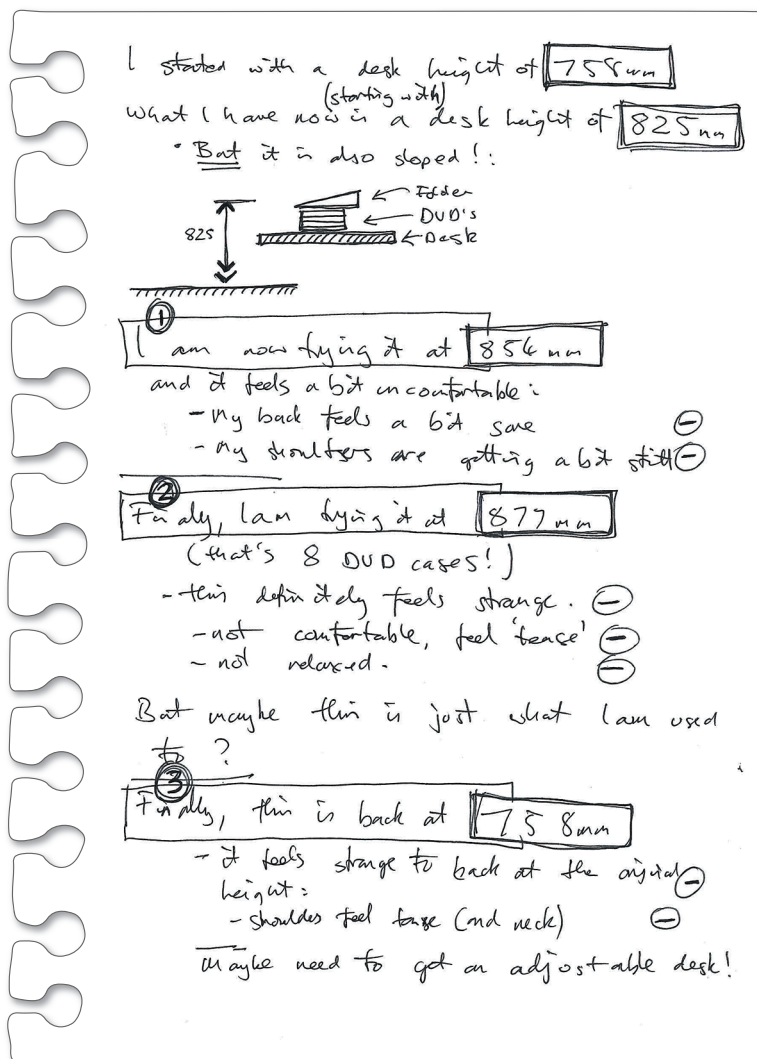 I started with a desk height of 758mm
(starting with)
What I have now is a desk height of 825mm
• But it is also sloped!:
Folder
DVD's
825
Desk
①
I am now trying it at 854 mm
and it feels a bit uncomfortable:
- my back feels a bit sore ⊖
- my shoulders are getting a bit stiff ⊖
②
Finally, I am trying it at 877 mm
(that's 8 DVD cases!)
- this definitely feels strange. ⊖
- not comfortable, feel 'tense' ⊖
- not relaxed. ⊖
But maybe this is just what I am used
to?
③
Finally, this is back at 758mm
- it feels strange to back at the original ⊖
height:
- shoulders feel tense (and neck) ⊖
Maybe need to get an adjustable desk!